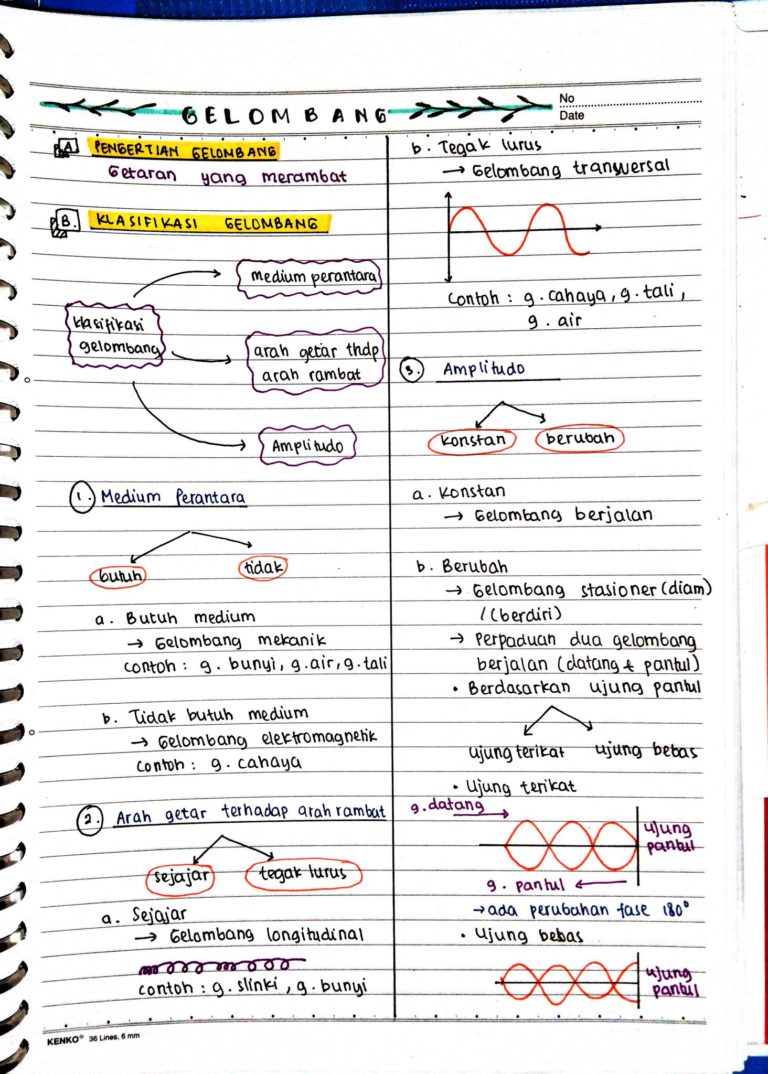 GELOMBANG
No
Date
A. PENGERTIAN GELOMBANG
Getaran yang merambat
B. KLASIFIKASI GELOMBANG
klasifikasi
gelombang
medium perantara
arah getar thdp
arah rambat
Amplitudo
1. Medium Perantara
butuh
tidak
a. Butuh medium
→ Gelombang mekanik
contoh : g. bunyi, g.air, g.tali
b. Tidak butuh medium
→ Gelombang elektromagnetik
contoh : g. cahaya
2. Arah getar terhadap arah rambat
sejajar
tegak lurus
a. Sejajar
→ Gelombang longitudinal
contoh : g. slinki, g. bunyi
b. Tegak lurus
→ Gelombang transversal
Contoh : g. cahaya, g. tali,
g. air
3. Amplitudo
konstan
berubah
a. Konstan
→ Gelombang berjalan
b. Berubah
→ Gelombang stasioner (diam)
/(berdiri)
→ Perpaduan dua gelombang
berjalan (datang + pantul)
• Berdasarkan ujung pantul
ujung terikat
ujung bebas
• Ujung terikat
g. datang
ujung
pantul
g. pantul ←
→ ada perubahan fase 180°
• Ujung bebas
ujung
pantul
KENKO® 36 Lines, 6 mm